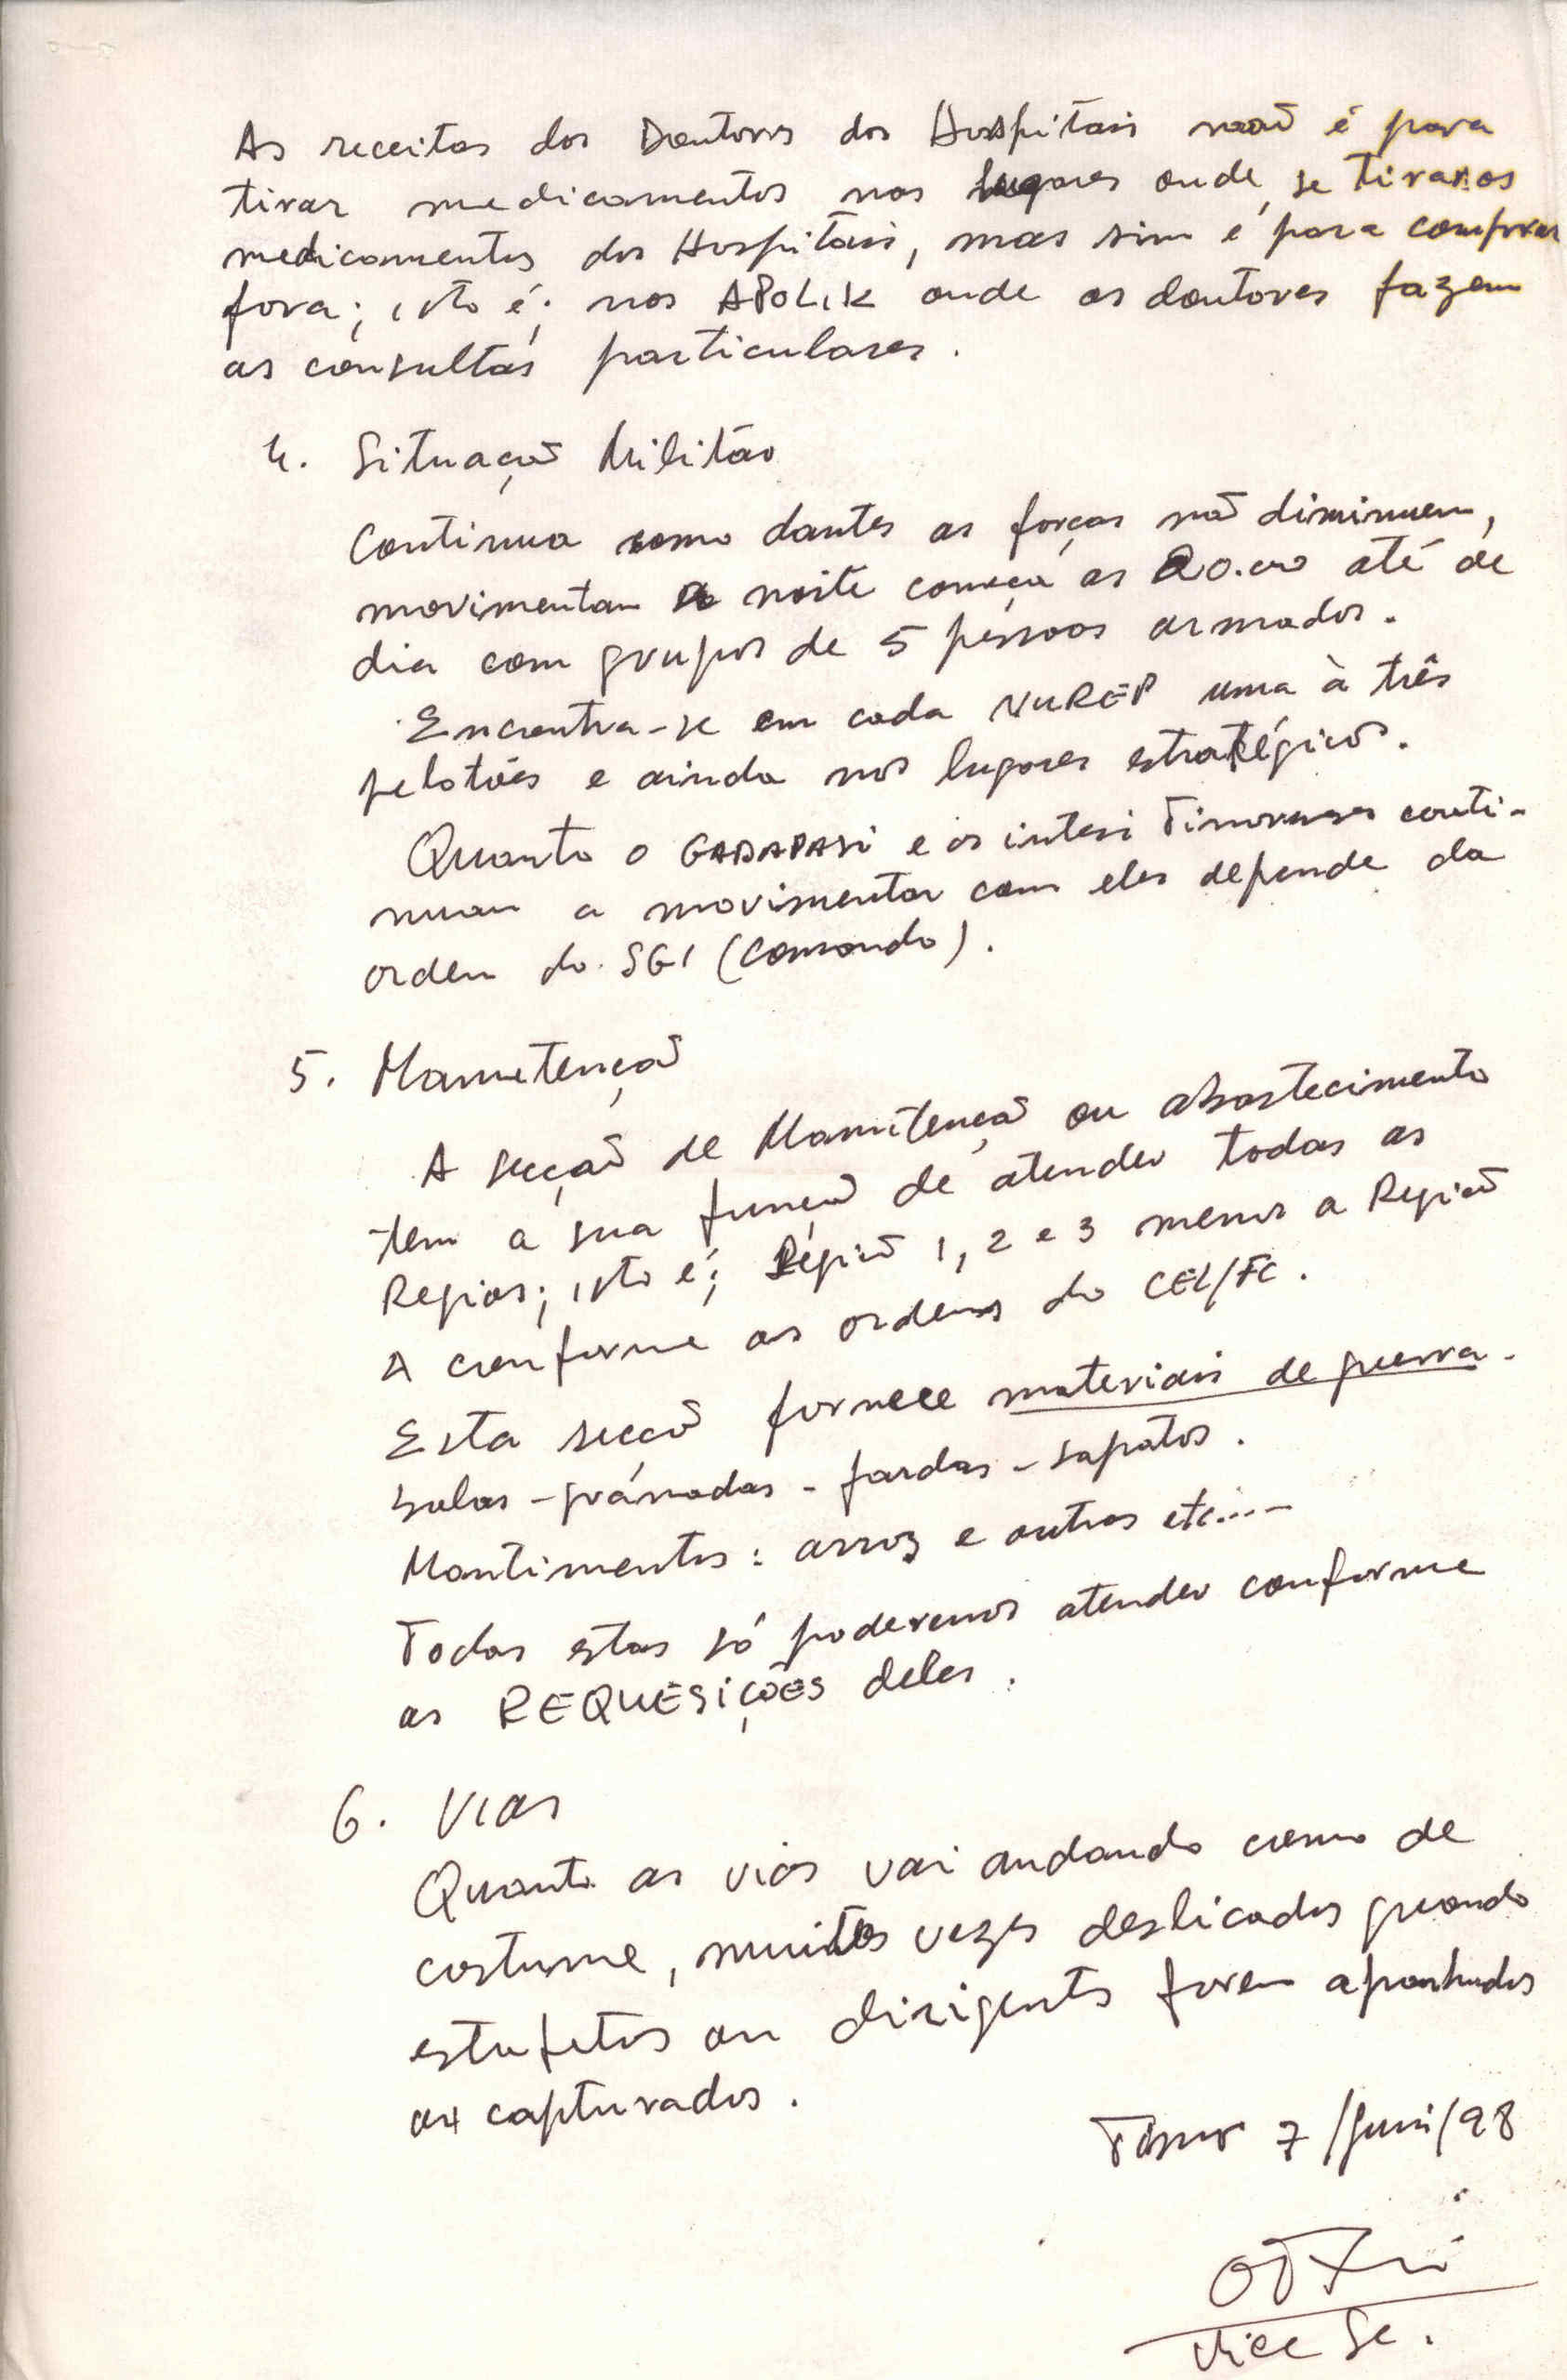 As receitas dos Doutores dos Hospitais não é para
tirar medicamentos nos lugares onde se tiram os
medicamentos dos Hospitais, mas sim é para comprar
fora; isto é; nos APOLIK onde os doutores fazem
as consultas particulares.
4. Situação Militar
Continua como dantes as forças não diminuem,
movimentam a noite começa as 20.00 até de
dia com grupos de 5 pessoas armados.
Encontra-se em cada NUREP uma à três
pelotões e ainda nos lugares estratégicos.
Quanto o GADAPASI e os intesi Timorenses conti-
nuam a movimentar com eles depende da
ordem do SGI (Comando).
5. Manutenção
A secção de Manutenção ou abastecimento
tem a sua função de atender todas as
Regios; isto é; Região 1, 2 e 3 menos a Região
4 conforme as ordens do CEL/FC.
Esta secção fornece materiais de guerra.
balas - gránadas - fardas - sapatos.
Mantimentos: arroz e outros etc....-
Todas estas só poderemos atender conforme
as REQUESIÇÕES deles.
6. Vias
Quanto as vias vai andando como de
costume, muitos vezes deslicados quando
estafetas ou dirigentes forem apanhados
ou capturados.
Timor 7/Juni/98
Vice Se.